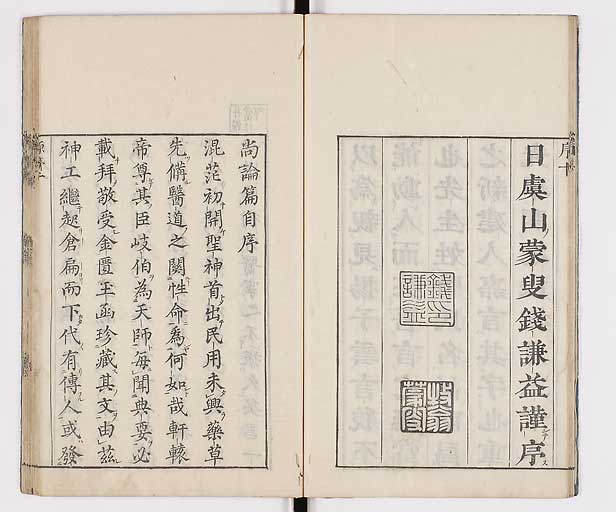 序十
日虞山蒙叟錢謙益謹序
錢印
謙益
牧翁
蒙叟
尚論篇自序
混茫初開聖神首出民用未興藥草
先備醫道之関性命為何如哉軒轅
帝尊其臣岐伯為天師每聞典要必
載拜敬受金匱玉函珍藏其文由茲
神工繼起倉扁而下代有傳人或發